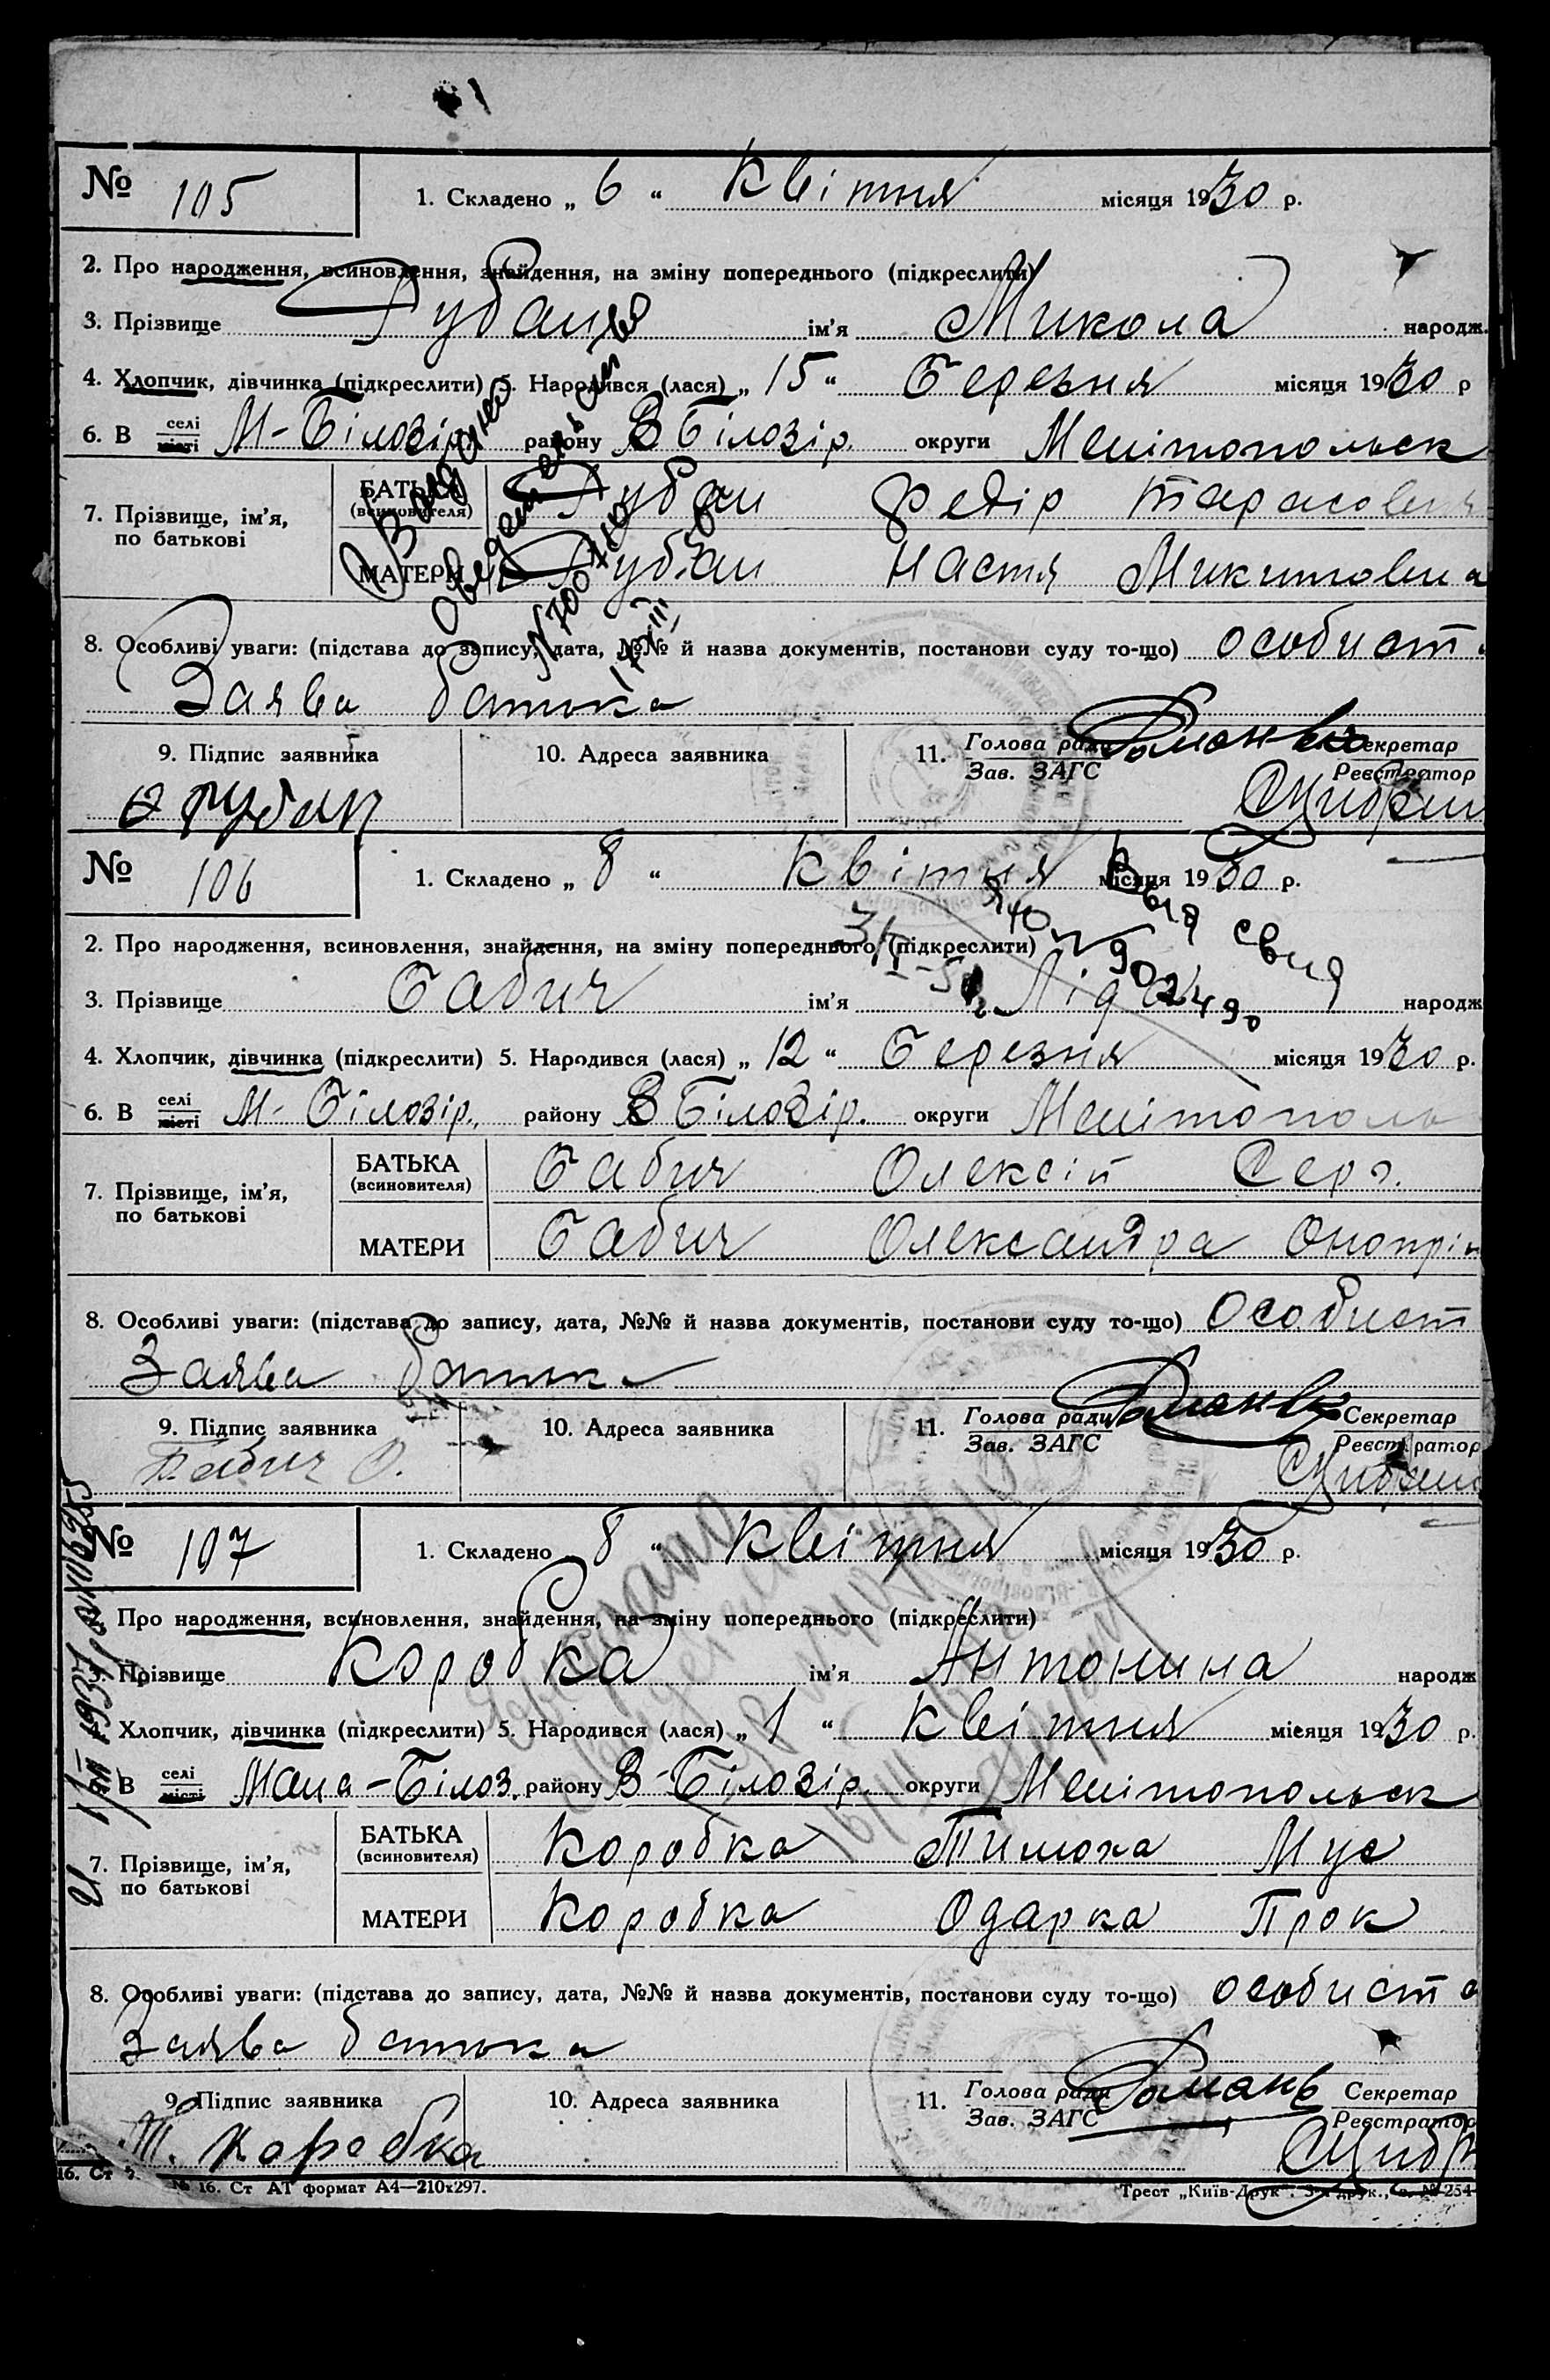 № 105
1. Складено „ 6 “ Квітня місяця 1930 р.
2. Про народження, всиновлення, знайдення, на зміну попереднього (підкреслити)
3. Прізвище Губан ім’я Микола народж.
4. Хлопчик, дівчинка (підкреслити) 5. Народився (лася) „ 15 “ Березня місяця 1930 р
6. В селі місті М-Білозір. району В Білозір. округи Мелітопольск
7. Прізвище, ім’я, по батькові
БАТЬКА (всиновителя) Губан Федір Тарасович
МАТЕРИ Губан Настя Микитовна
8. Особливі уваги: (підстава до запису, дата, №№ й назва документів, постанови суду то-що) особист
Заява батька
9. Підпис заявника
10. Адреса заявника
11. Голова ради Зав. ЗАГС
Секретар Реєстратор
Губан
№ 106
1. Складено „ 8 “ Квітня місяця 1930 р.
2. Про народження, всиновлення, знайдення, на зміну попереднього (підкреслити)
3. Прізвище Бабич ім’я Ліда народж
4. Хлопчик, дівчинка (підкреслити) 5. Народився (лася) „ 12 “ Березня місяця 1930 р.
6. В селі місті М- Білозір. району В Білозір. округи Мелітополь
7. Прізвище, ім’я, по батькові
БАТЬКА (всиновителя) Бабич Олексій Серг.
МАТЕРИ Бабич Олександра Онопрін
8. Особливі уваги: (підстава до запису, дата, №№ й назва документів, постанови суду то-що) Особист
Заява батька
9. Підпис заявника
10. Адреса заявника
11. Голова ради Зав. ЗАГС
Секретар Реєстратор
Бабич О.
№ 107
1. Складено „ 8 “ Квітня місяця 1930 р.
Про народження, всиновлення, знайдення, на зміну попереднього (підкреслити)
3. Прізвище Коробка ім’я Антонина народж
Хлопчик, дівчинка (підкреслити) 5. Народився (лася) „ 1 “ Квітня місяця 1930 р.
В селі місті Мала-Білоз. району В-Білозір. округи Мелітопольск
7. Прізвище, ім’я, по батькові
БАТЬКА (всиновителя) Коробка Тимоха Мус
МАТЕРИ Коробка Одарка Прок
8. Особливі уваги: (підстава до запису, дата, №№ й назва документів, постанови суду то-що) особиста
Заява батька
9. Підпис заявника
10. Адреса заявника
11. Голова ради Зав. ЗАГС
Секретар Реєстратор
Т. Коробка
№ 16. Ст АТ формат А4—210х297.
Трест „Київ-Друк“.